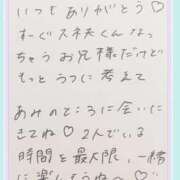 いつもありがとう♡
すーぐスネ夫くんなっ
ちゃうお兄様だけど
もっとうつに考えて
あみのところに会いに
きてね♡2人でいる
時間を最大限、一緒
に楽しもうね〜♡